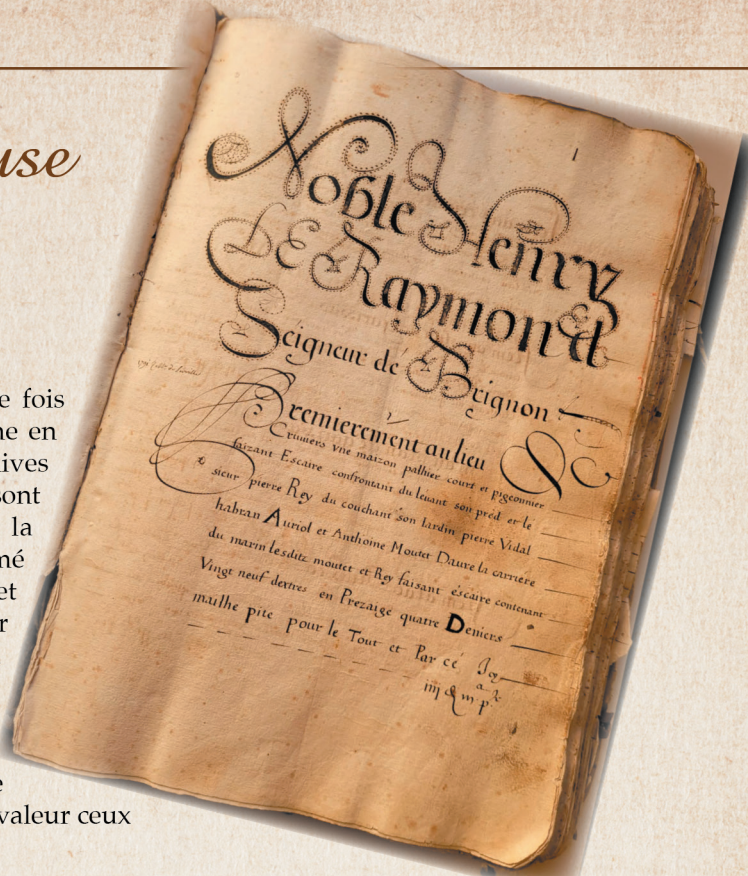 use
e fois
ne en
ives
sont
la
mé
et
r
e
valeur ceux
1
Noble Henry
DE Raymond
Seigneur de Brignon
Premierement au lieu
Cruviers vne maizon palhier court et pigeonnier
faizant Escaire confrontant du leuant son pred et le
sieur pierre Rey du couchant son Iardin pierre Vidal
habran Auriol et Anthoine Moutet Daure la carriere
du marin lesditz moutet et Rey faisant éscaire contenant
Vingt neuf dextres en Prezaige quatre Deniers
mailhe pite pour le Tout et Par cé Icy